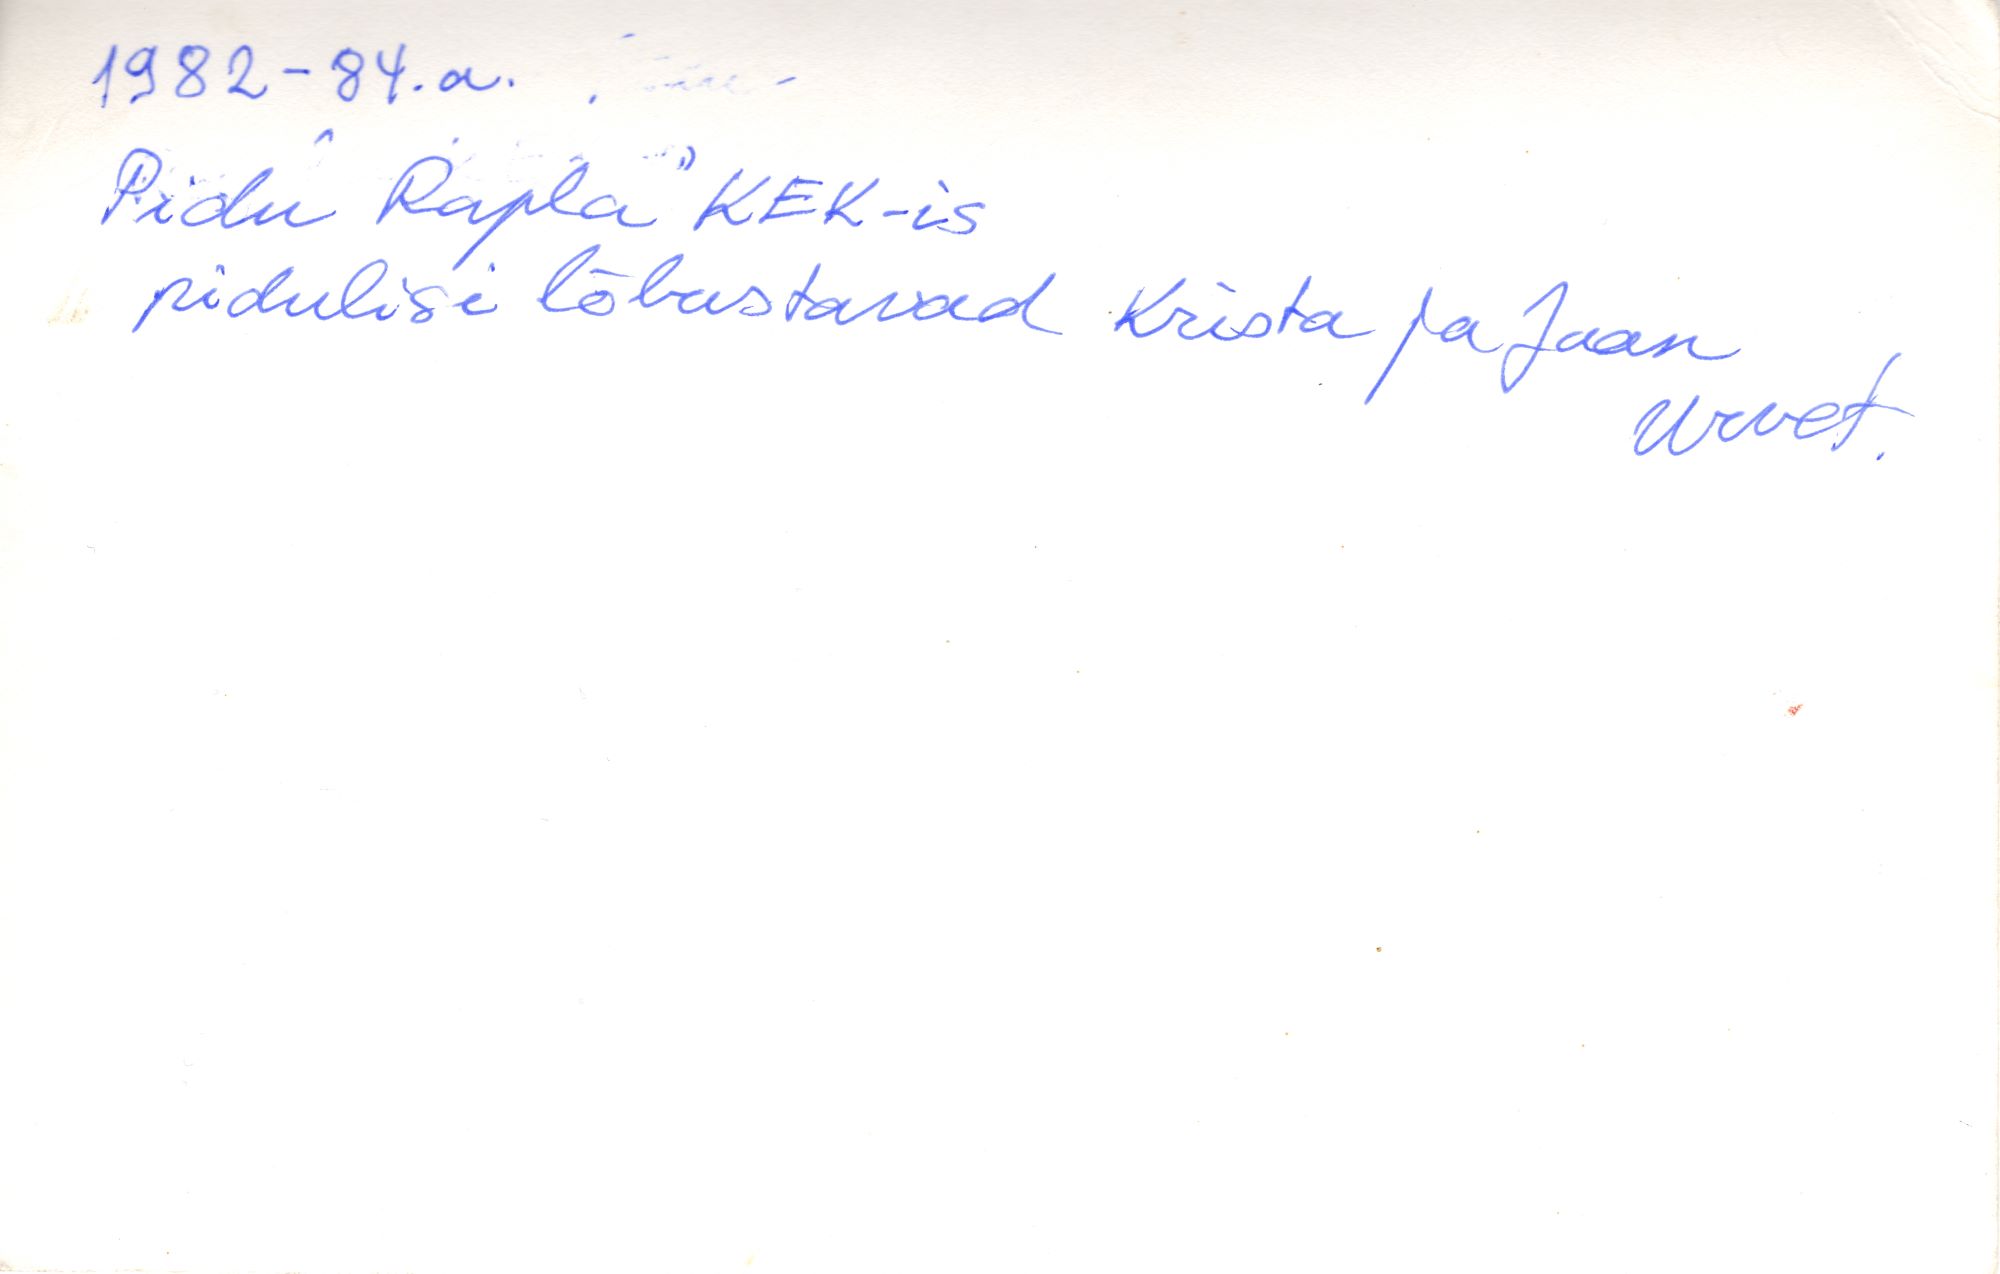 1982-84.a.
Pidu Rapla" KEK-is
pidulisi lõbustavad Krista ja Jaan
Urvet.